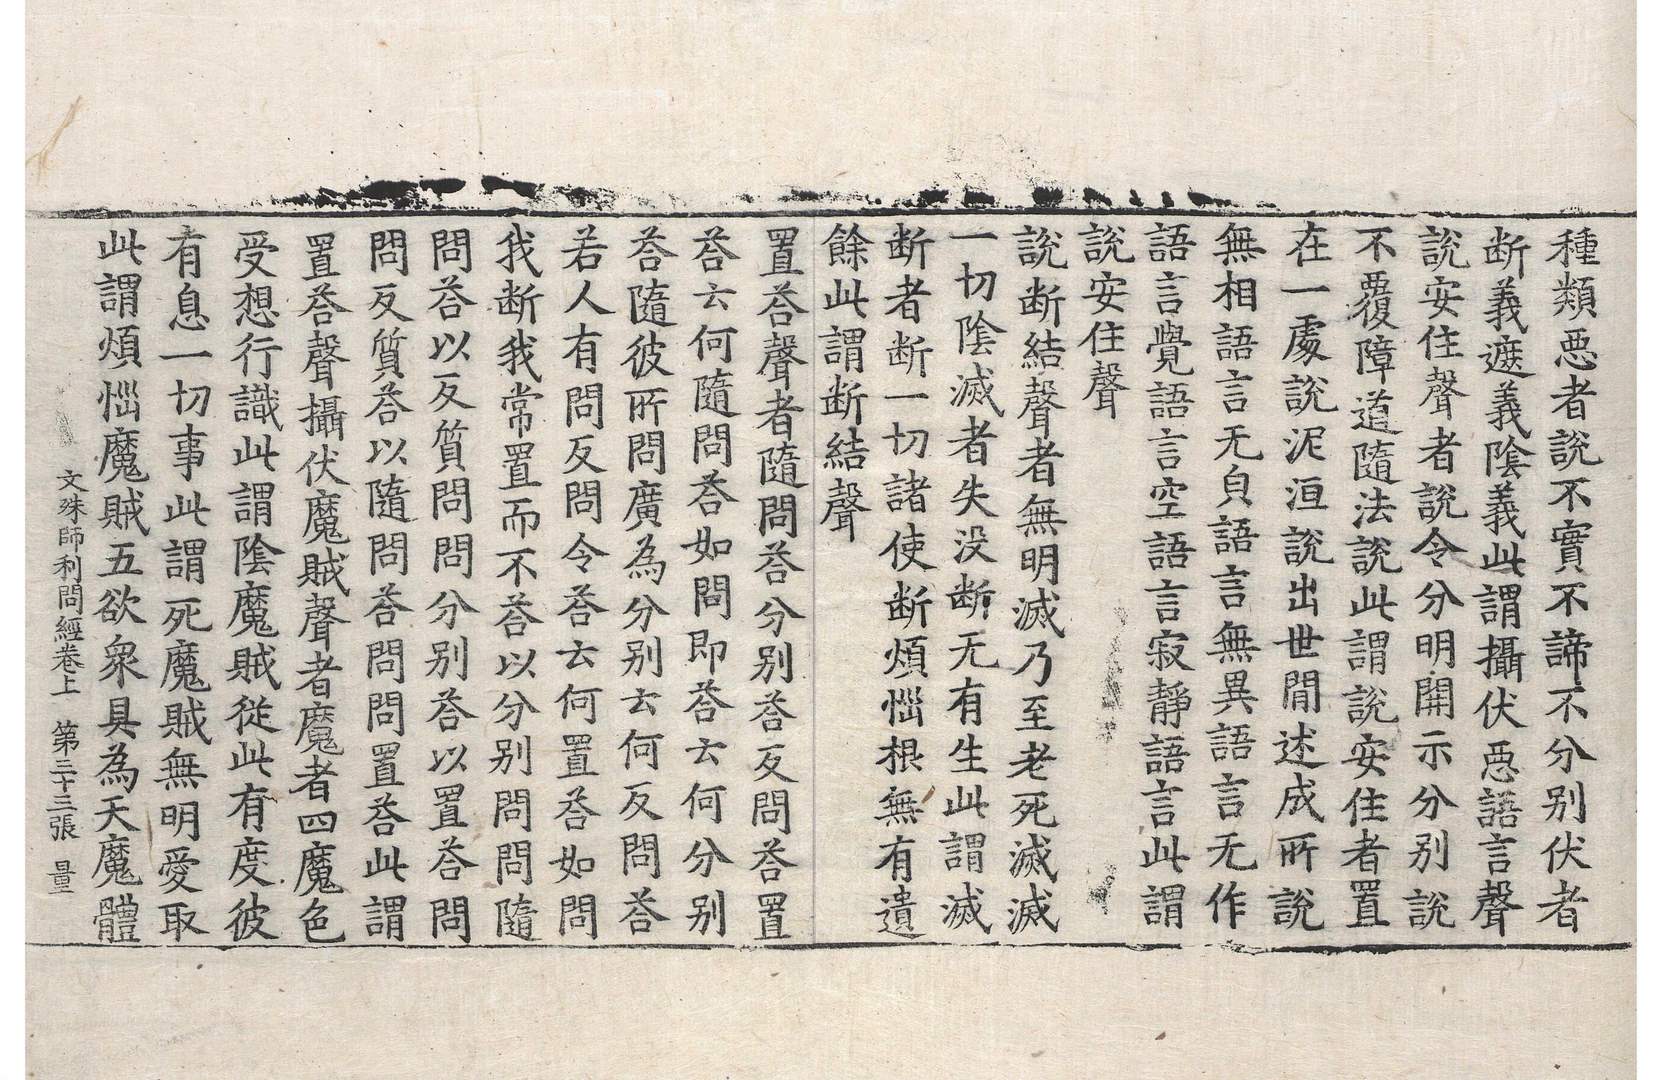 種類惡者說不實不諦不分別伏者
断義遮義陰義此謂攝伏惡語言聲
說安住聲者說令分明開示分別說
不覆障道隨法說此謂說安住者置
在一處說泥洹說出世間述成所說
無相語言无貟語言無異語言无作
語言覺語言空語言寂靜語言此謂
說安住聲
說断結聲者無明滅乃至老死滅滅
一切陰滅者失没断无有生此謂滅
断者断一切諸使断煩惱根無有遺
餘此謂断結聲
置荅聲者隨問荅分别荅反問荅置
荅云何隨問荅如問即荅云何分别
荅隨彼所問廣為分别云何反問荅
若人有問反問令荅云何置荅如問
我断我常置而不荅以分别問問隨
問荅以反質問問分别荅以置荅問
問反質荅以隨問荅問問置荅此謂
置荅聲攝伏魔賊聲者魔者四魔色
受想行識此謂陰魔賊從此有度彼
有息一切事此謂死魔賊無明愛取
此謂煩惱魔賊五欲衆具為天魔體
文殊師利問經卷上 第二十三張 量